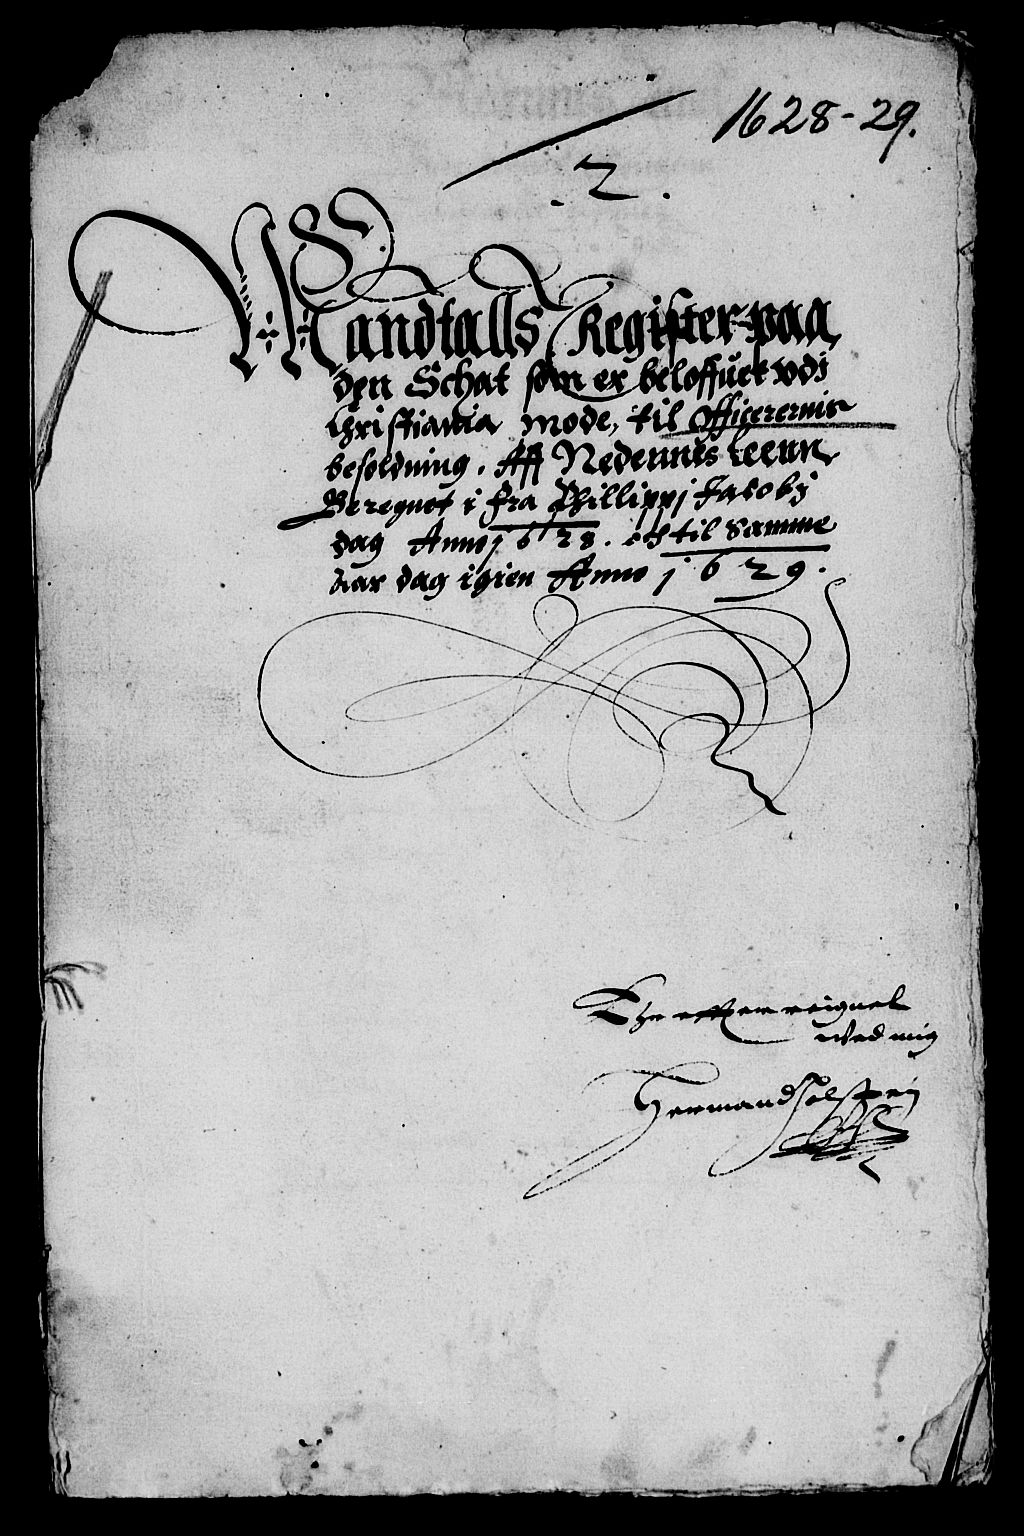 1628-29.
.2.
Mandtalls Register paa
den Schat som er beloffuet vdi
Christiania mode, til Officerernis
besoldning. Aff Nedennes Leenn
Beregnet i fra Phillippj Jacobj
dag Anno 1628. och til Samme
aar dag igien Anno 1629.
ved mig
Herman Holstein